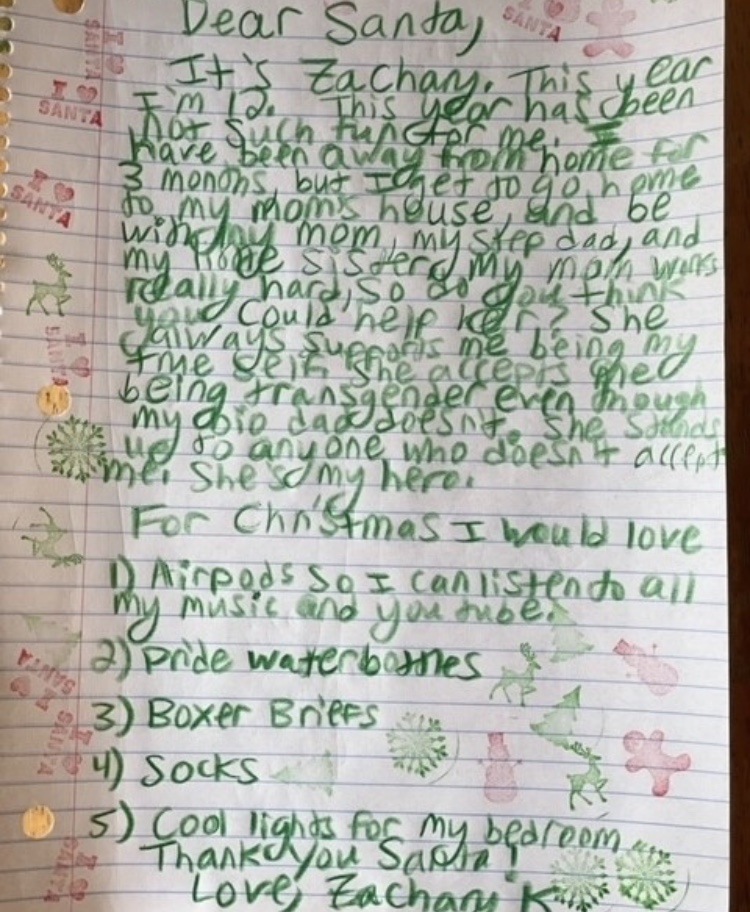 Dear Santa,
It's Zachary. This year
I'm 12. This year has been
not such fun for me. I
have been away from home for
3 months, but I get to go home
to my mom's house, and be
with my mom, my step dad, and
my sister. My mom works
really hard, so do you think
you could help her? She
always supports me being my
true self. She accepts me
being transgender even though
my bio dad doesn't. She stands
up to anyone who doesn't accept
me. She's my hero.
For Christmas I would love
1) Airpods so I can listen to all
my music and youtube.
2) Pride waterbottles
3) Boxer Briefs
4) Socks
5) Cool lights for my bedroom
Thank you Santa!
Love, Zachary K
I ♥ SANTA
I ♥ SANTA
I ♥ SANTA
I ♥ SANTA
I ♥ SANTA
I ♥ SANTA
I ♥ SANTA
SANTA